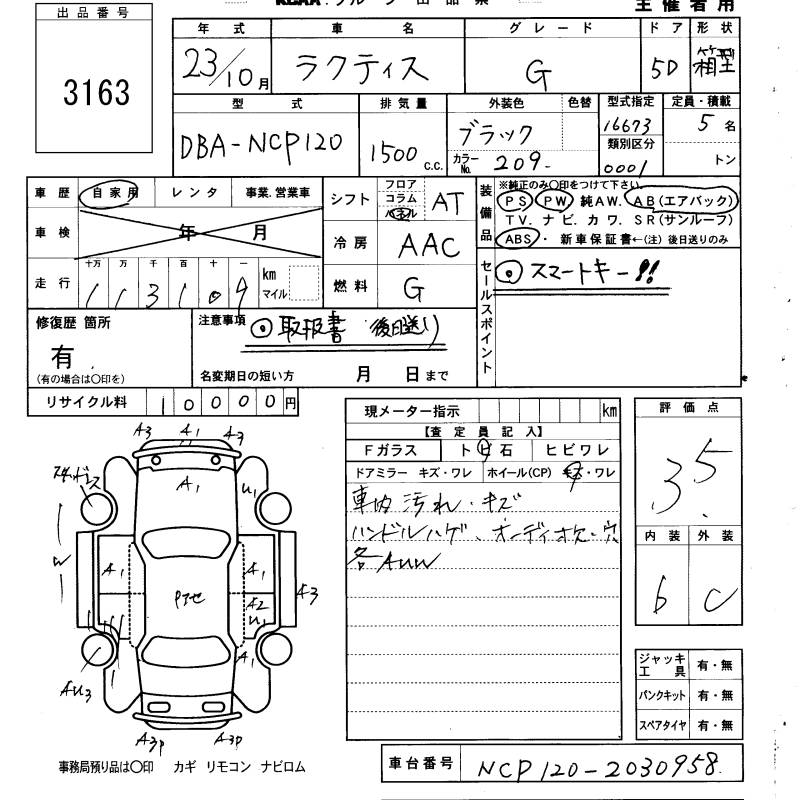 主催者用
出品番号
3163
年式 車名 グレード ドア 形状
23/10月 ラクティス G 5D 箱型
型式 排気量 外装色 色替 型式指定 定員・積載
DBA-NCP120 1500c.c. ブラック 16673 5名
カラーNo. 209. 類別区分 0001 トン
車歴 自家用 レンタ 事業.営業車
車検 年 月
走行 十万 万 千 百 十 一 km マイル
113109
シフト フロア コラム パネル AT
冷房 AAC
燃料 G
装備品
※純正のみ〇印をつけて下さい。
PS PW 純AW. AB(エアバック)
TV. ナビ. カワ. SR(サンルーフ)
ABS・ 新車保証書←(注) 後日送りのみ
セールスポイント
スマートキー!!
修復歴 箇所
有
(有の場合は〇印を)
注意事項
取扱書 後日送り
名変期日の短い方 月 日まで
リサイクル料 10000円
現メーター指示 km
【査定員記入】
Fガラス トビ石 ヒビワレ
ドアミラー キズ・ワレ ホイール(CP) キズ・ワレ
車内汚れ・キズ
ハンドルハゲ、オーディオ欠・穴
各AUW
評価点
3.5
内装 外装
b C
ジャッキ工具 有・無
パンクキット 有・無
スペアタイヤ 有・無
A3 A1 A3
A1 U1
W
A1 A1
A2
U1
A3
A1
AU3
A3P A3P
事務局預り品は〇印 カギ リモコン ナビロム
車台番号 NCP120-2030958